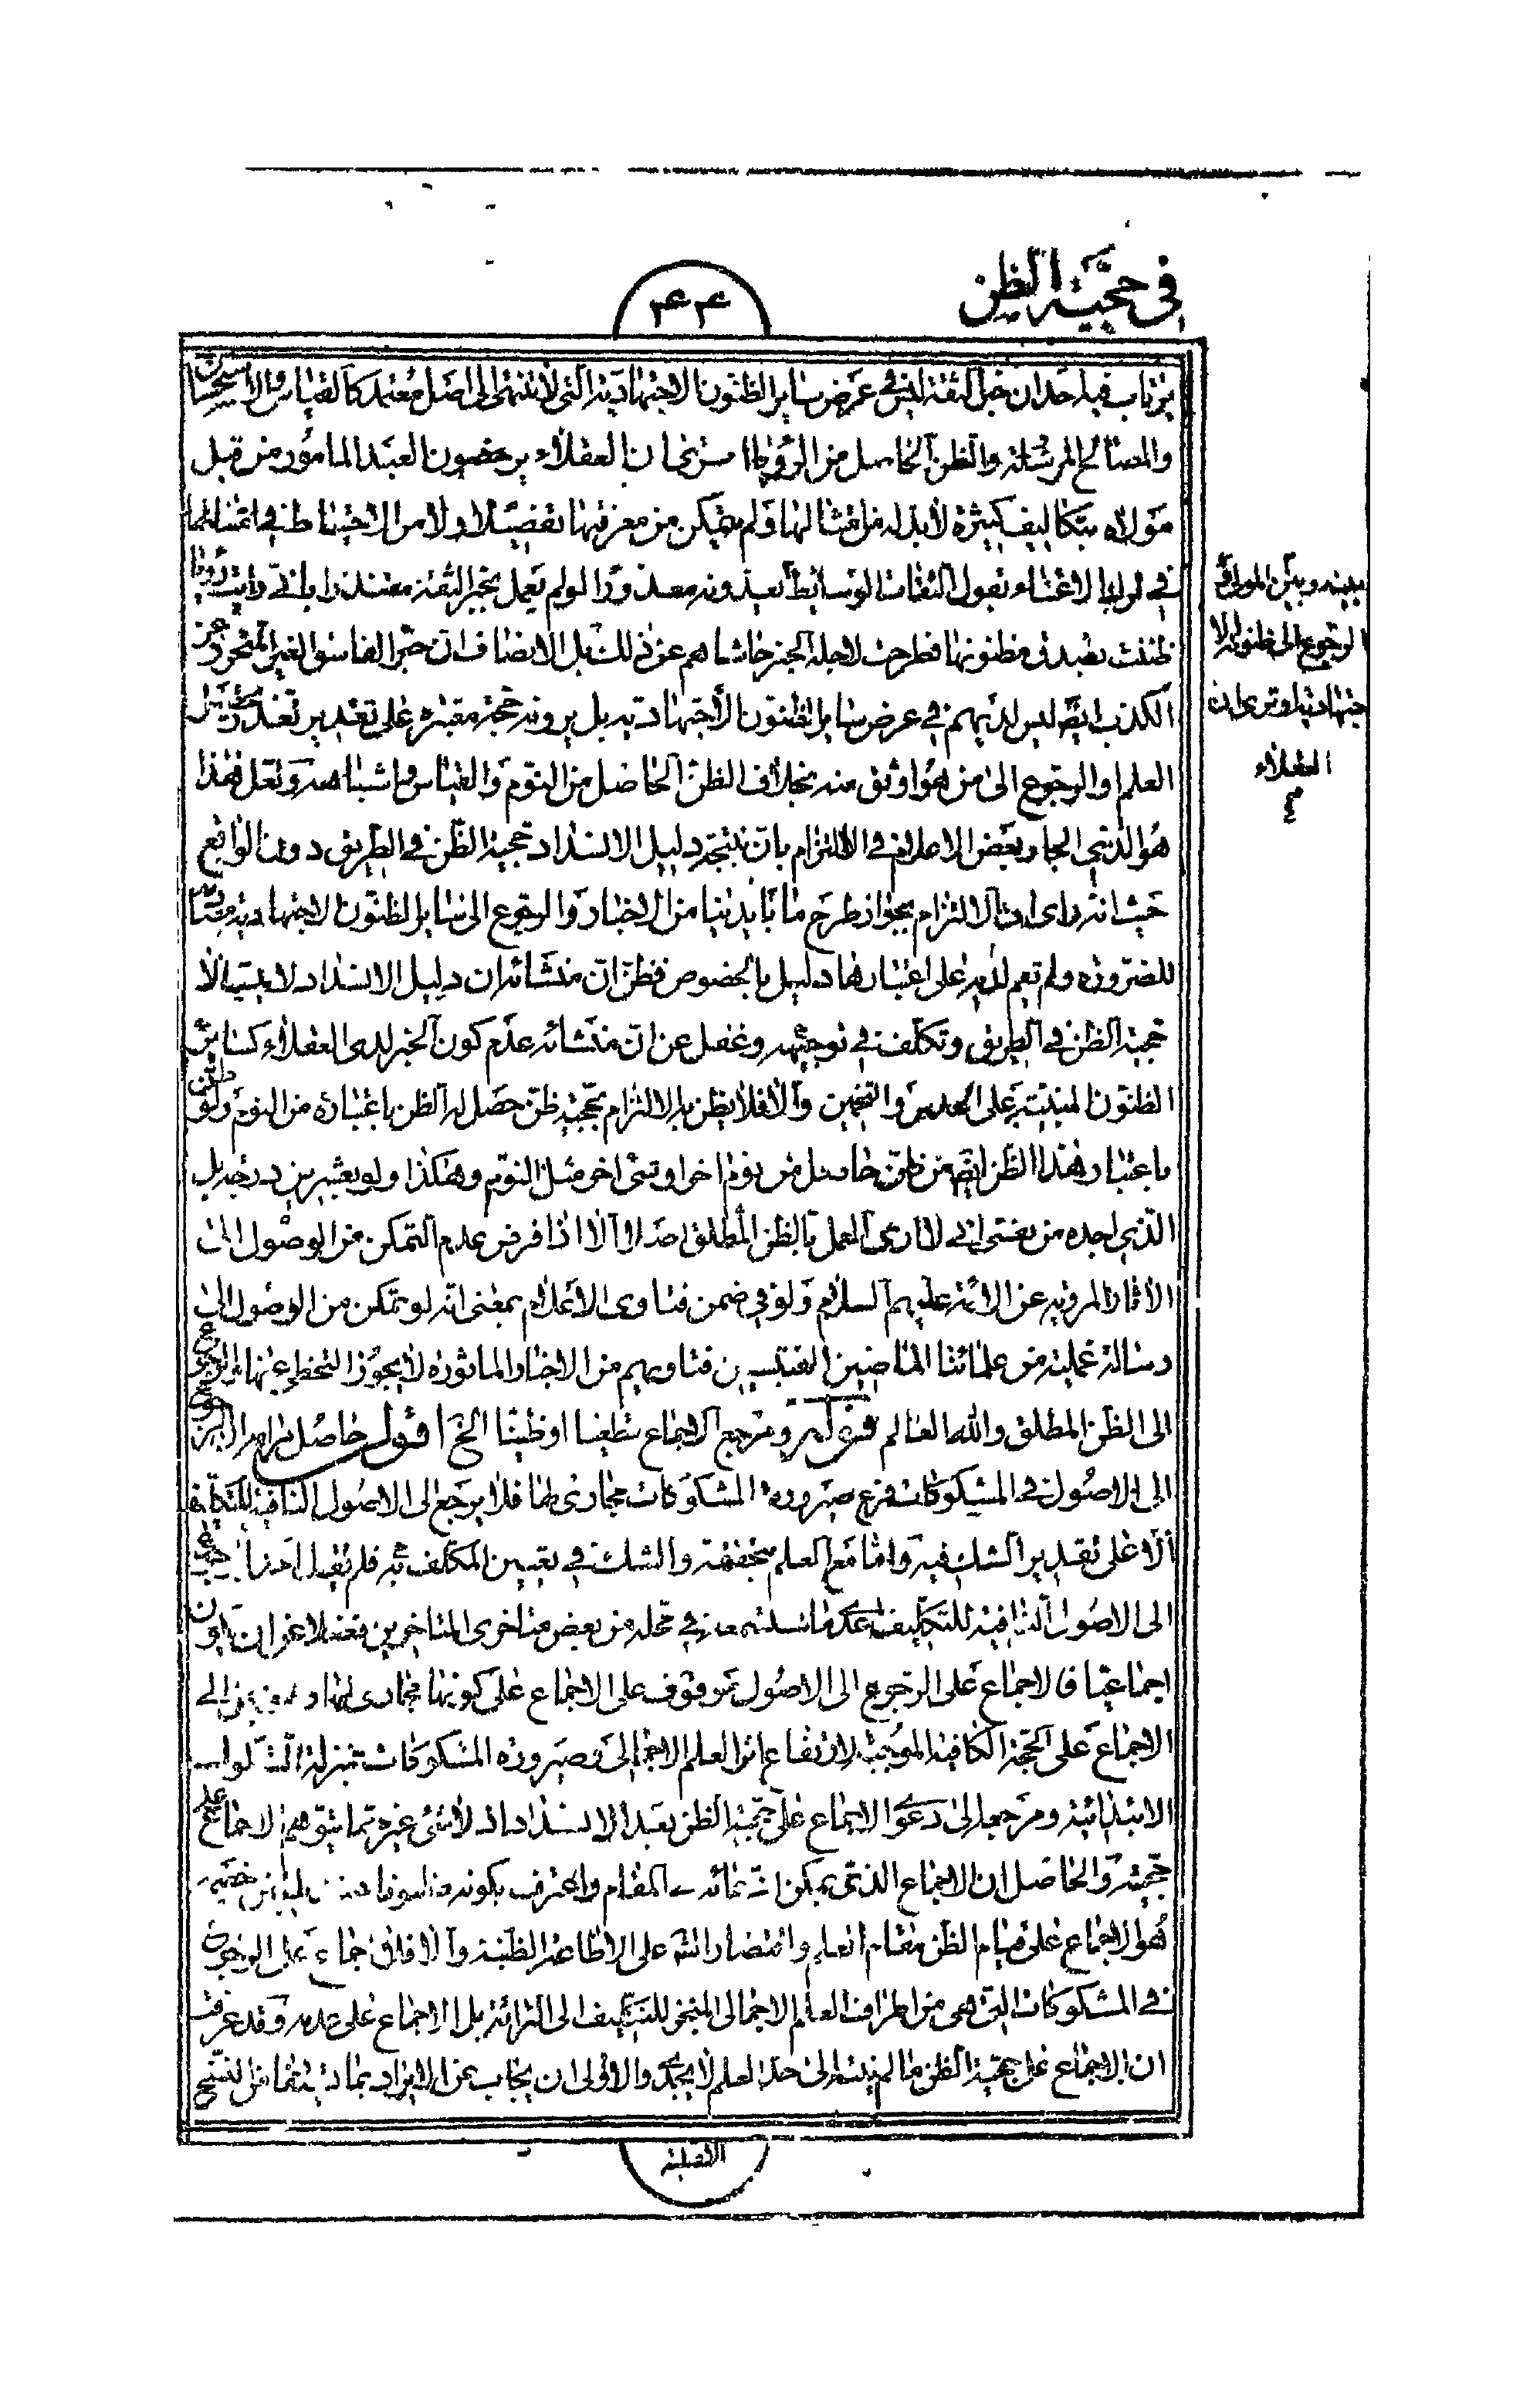 في حجية الظن
٤٤
يرتاب فيه احد ان خبر الثقة ليس في عرض ساير الظنون الاجتهادية التي لا تنتهي الى اصل معتمد كالقياس والاستحسان
والمصالح المرسلة والظن الحاصل من الرؤيا ان العقلاء يرخصون العبد المامور من قبل
مولاه بتكاليف كثيرة لابد له من امتثالها ولم يتمكن من معرفتها تفصيلا ولا من الاحتياط في امتثالها
في الاعتناء بقول الثقات الوسايط بعيد ونه معذورا لو لم يعمل بخبر الثقة معتذرا باني رايت رؤيا
ظننت بصدق مظنونها فطرحت لاجله الخبر حاشاهم عن ذلك بل الانصاف ان خبر الفاسق الغير المتحرز عن
الكذب ايضا ليس لديهم في عرض ساير الظنون الاجتهادية بل يرونه حجة معتبرة على تقدير تعذر تحصيل
العلم او الرجوع الى من هو اوثق منه بخلاف الظن الحاصل من النوم والقياس واشباهه ولعل هذا
هو الذي الجا بعض الاعلام في الالتزام بان نتيجة دليل الانسداد حجية الظن في الطريق دون الواقع
حيث انه راى ان الالتزام بجواز طرح ما بايدينا من الاخبار والرجوع الى ساير الظنون الاجتهادية
للضرورة ولم يقم لديه على اعتبارها دليل بالخصوص فظن ان منشائه ان دليل الانسداد لا يثبت الا
حجية الظن في الطريق وتكلف في توجيهه وغفل عن ان منشائه عدم كون الخبر لدى العقلاء كساير
الظنون المبنية على الحدس والتخمين والا فلا يظن به الالتزام بحجية ظن حصل له الظن باعتباره من النوم ولو
باعتبار هذا الظن ايضا من ظن حاصل من نوم اخر او شئ اخر مثل النوم وهكذا ولو بعشرين درجة بل
الذي اجده من نفسي اني لا ارى العمل بالظن المطلق اصلا الا اذا فرض عدم التمكن من الوصول الى
الاثار المروية عن الائمة عليهم السلام ولو في ضمن فتاوى الاعلام بمعنى انه لو تمكن من الوصول الى
رسالة عملية من علمائنا الماضين المقتبسين فتاويهم من الاخبار الماثورة لا يجوز التخطي عنها والرجوع
الى الظن المطلق والله العالم قوله ومرجع الاجماع قطعيا او ظنيا الخ اقول حاصل مرامه ان الرجوع
الى الاصول في المشكوكات فرع صيرورة المشكوكات مجارى لها فلا يرجع الى الاصول النافية للتكليف
الا على تقدير الشك فيه واما مع العلم بتحققه والشك في تعيين المكلف به فلم يقل احد بالرجوع
الى الاصول النافية للتكليف عدا ما في محله من بعض متاخرى المتاخرين فضلا عن ان يكون
اجماعيا فالاجماع على الرجوع الى الاصول موقوف على الاجماع على كونها مجارى لها
الاجماع على الحجة الكافية الموجبة لارتفاع اثر العلم الاجمالى وصيرورة المشكوكات بمنزلة الشكوك
الابتدائية ومرجعه الى دعوى الاجماع على حجية الظن بعد الانسداد اذ لا شئ غيره مما يتوهم الاجماع على
حجيته والحاصل ان الاجماع الذي يمكن المقام واعترف بكونه
هو الاجماع على قيام الظن مقام العلم واقتصار الشارع على الاطاعة الظنية والا فلا اجماع على الرجوع
في المشكوكات التي هي من اطراف العلم الاجمالى المنجز للتكليف الى البرائة بل الاجماع على عدمه وقد عرفت
ان الاجماع على حجية الظن ما لم ينته الى حد العلم لا يجدى والاولى ان يجاب عن الايراد
بينه وبين
الرجوع الى ظنونه الا
جتهادية وترى ان
العقلاء